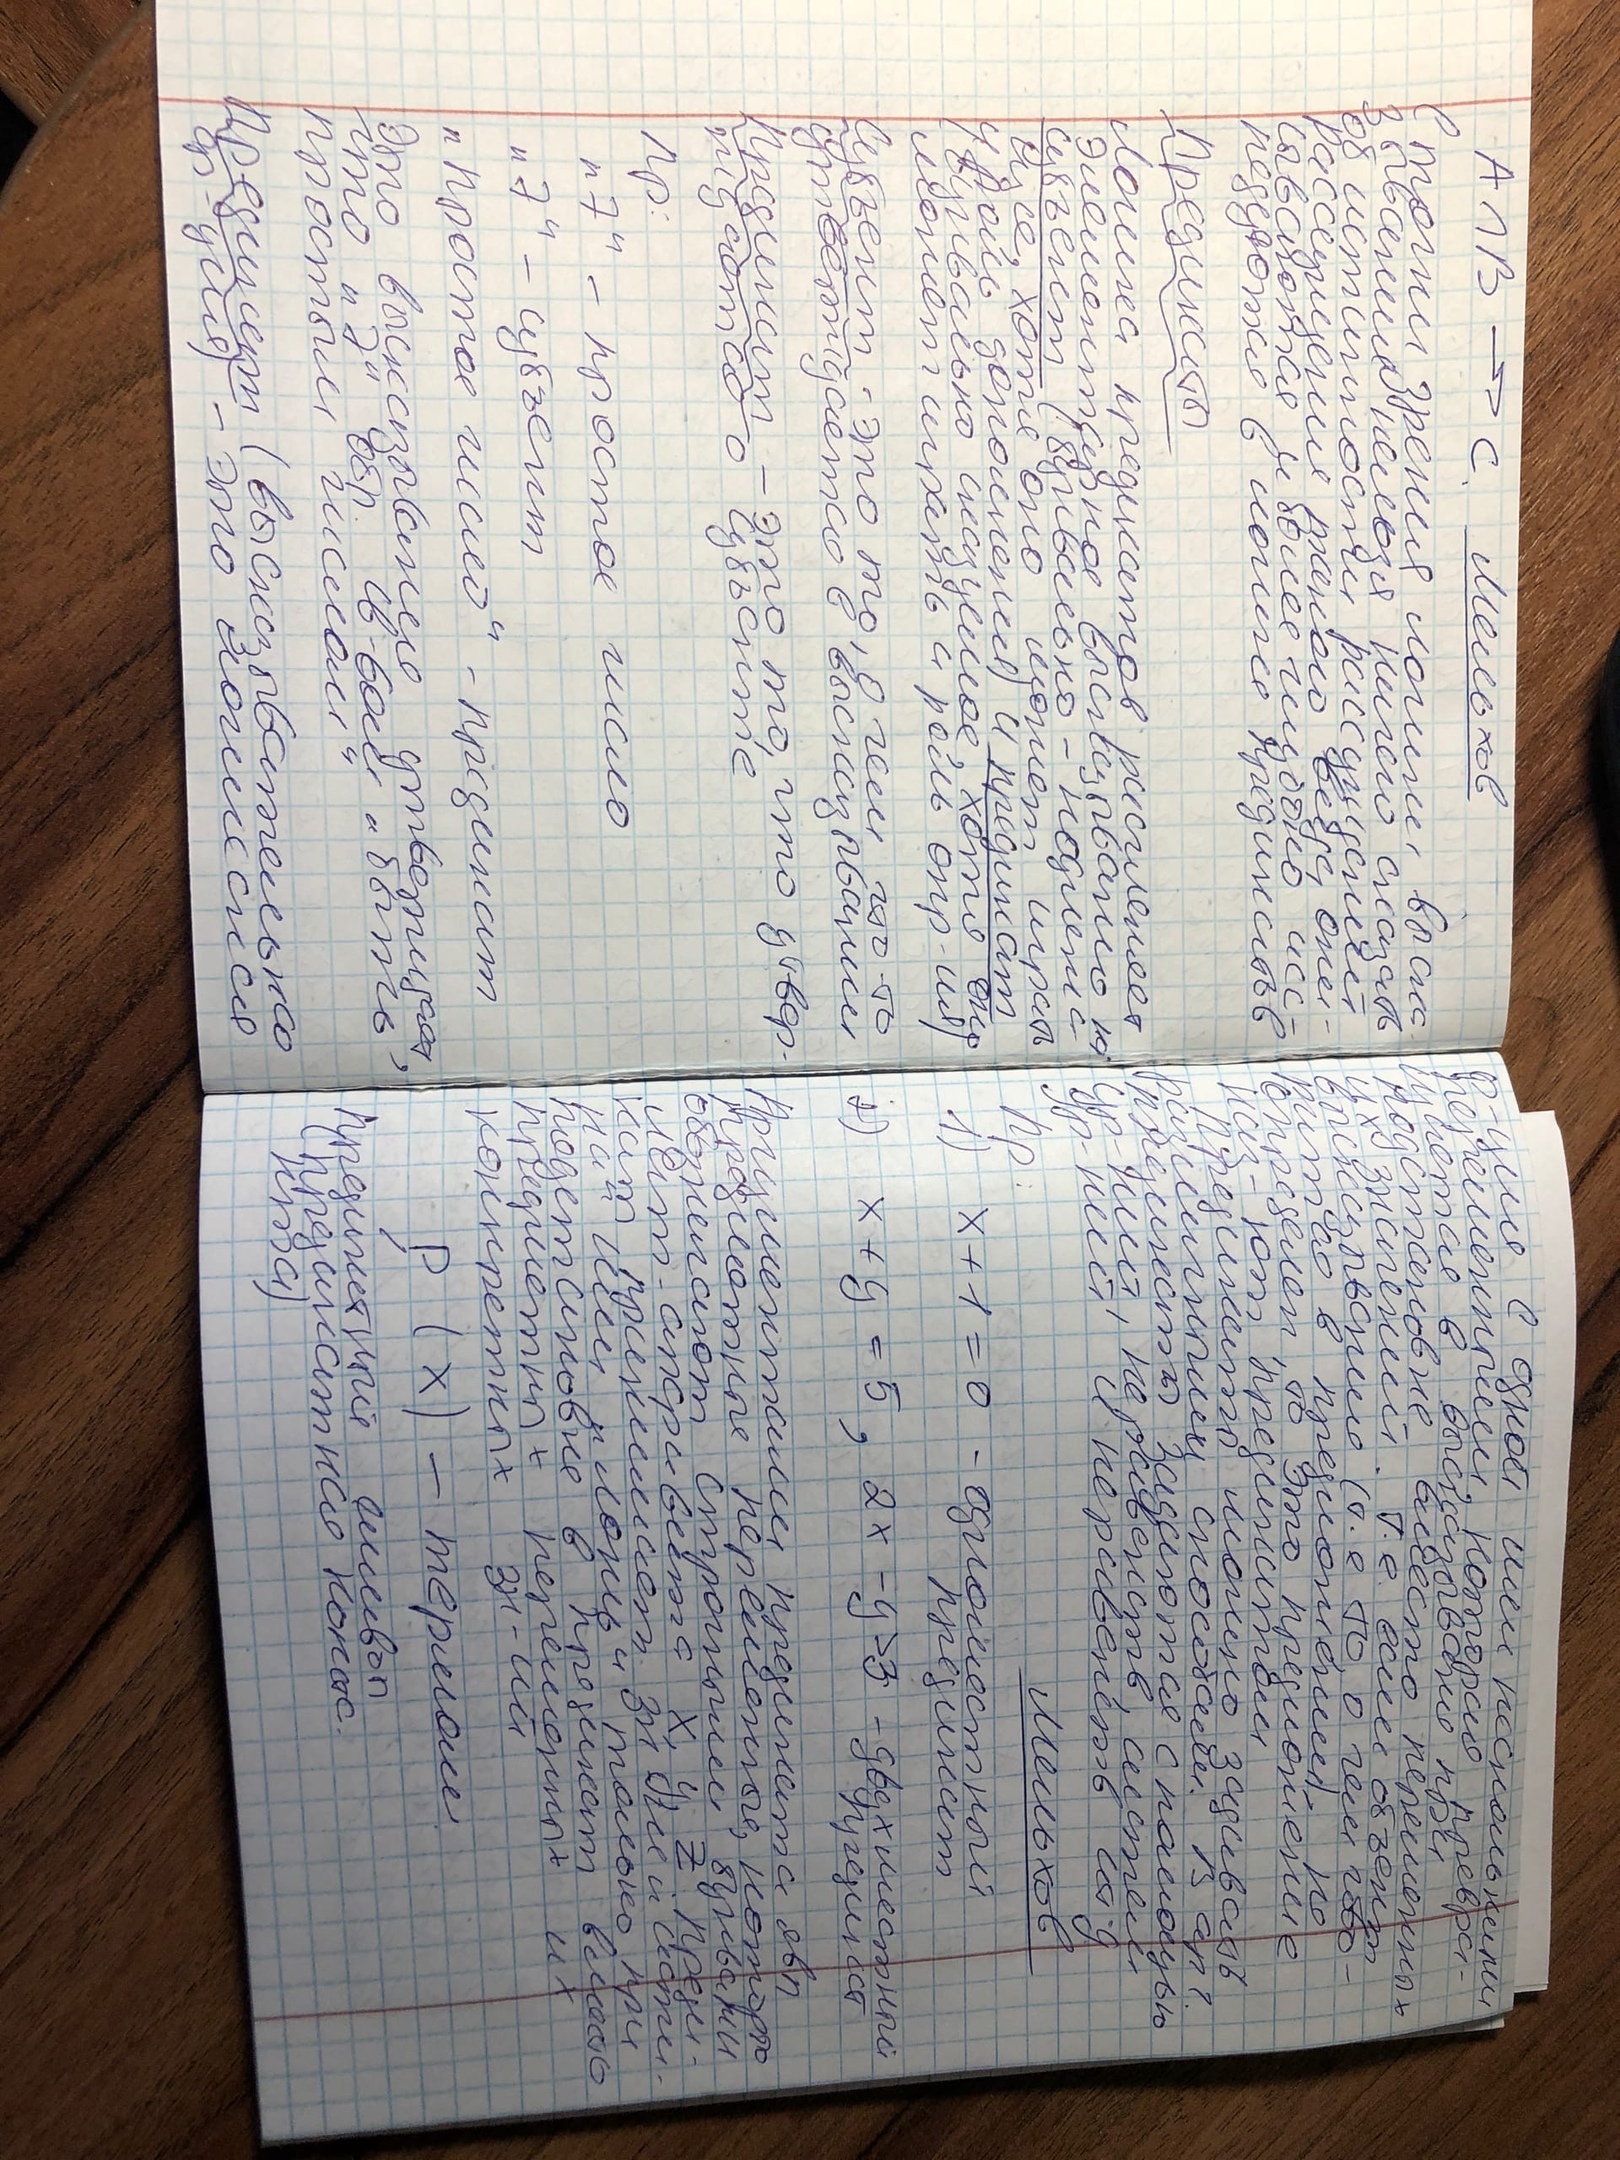 A ∩ B → C. Мельхов
С точки зрения логики выска-
зывания нельзя ничего сказать
об истинности рассуждений
рассуждения такого вида, опи-
сываются и более глубоко исс-
ледуются в логике предикатов
Предикаты
Логика предикатов расчленяет
элементарное высказывание на
субъект (буквально - подлежа-
щее, хотя оно может играть
и роль дополнения) и предикат
(буквально сказуемое, хотя оно
может играть и роль опр-ия)
Субъект - это то, о чем что-то
утверждается в высказывании
Предикат - это то, что утвер-
ждается о субъекте
Пр:
„7“ - простое число
„7“ - субъект
„Простое число“ - предикат
Это высказывание утверждает,
что „7“ обл. св-вом „быть
простым числом“
Предикат (высказывательная
ф-ция) - это логическая
ф-ция с одной или несколькими
переменными, которая превра-
щается в высказывание при
подстановке вместо переменных
их значений. Т.е. если объект
высказывания (т.е то, о чем гово-
рится в предложении), не
определен, то это предложение
наз-ют предикатом
Предикаты можно задавать
различными способами. В
предикаты задаются с помощью
ур-ний, неравенств, систем
ур-ний и неравенств и т.д
Мельхов
Пр:
1) x + 1 = 0 - одноместный
предикат
2) x + y = 5, 2x - y > 3 - двухместный
предикат
Аргументами предиката явл
предметные переменные, которые
обозначают строчными буквами
лат-алфавита x, y, z. Преди-
кат принимает зн-ие „исти-
на“ или „ложь“ только при
подстановке в предикат вместо
предметных переменных их
конкретных зн-ий
P (x) - термом
предикатный символ
(предикатная конста-
нта)